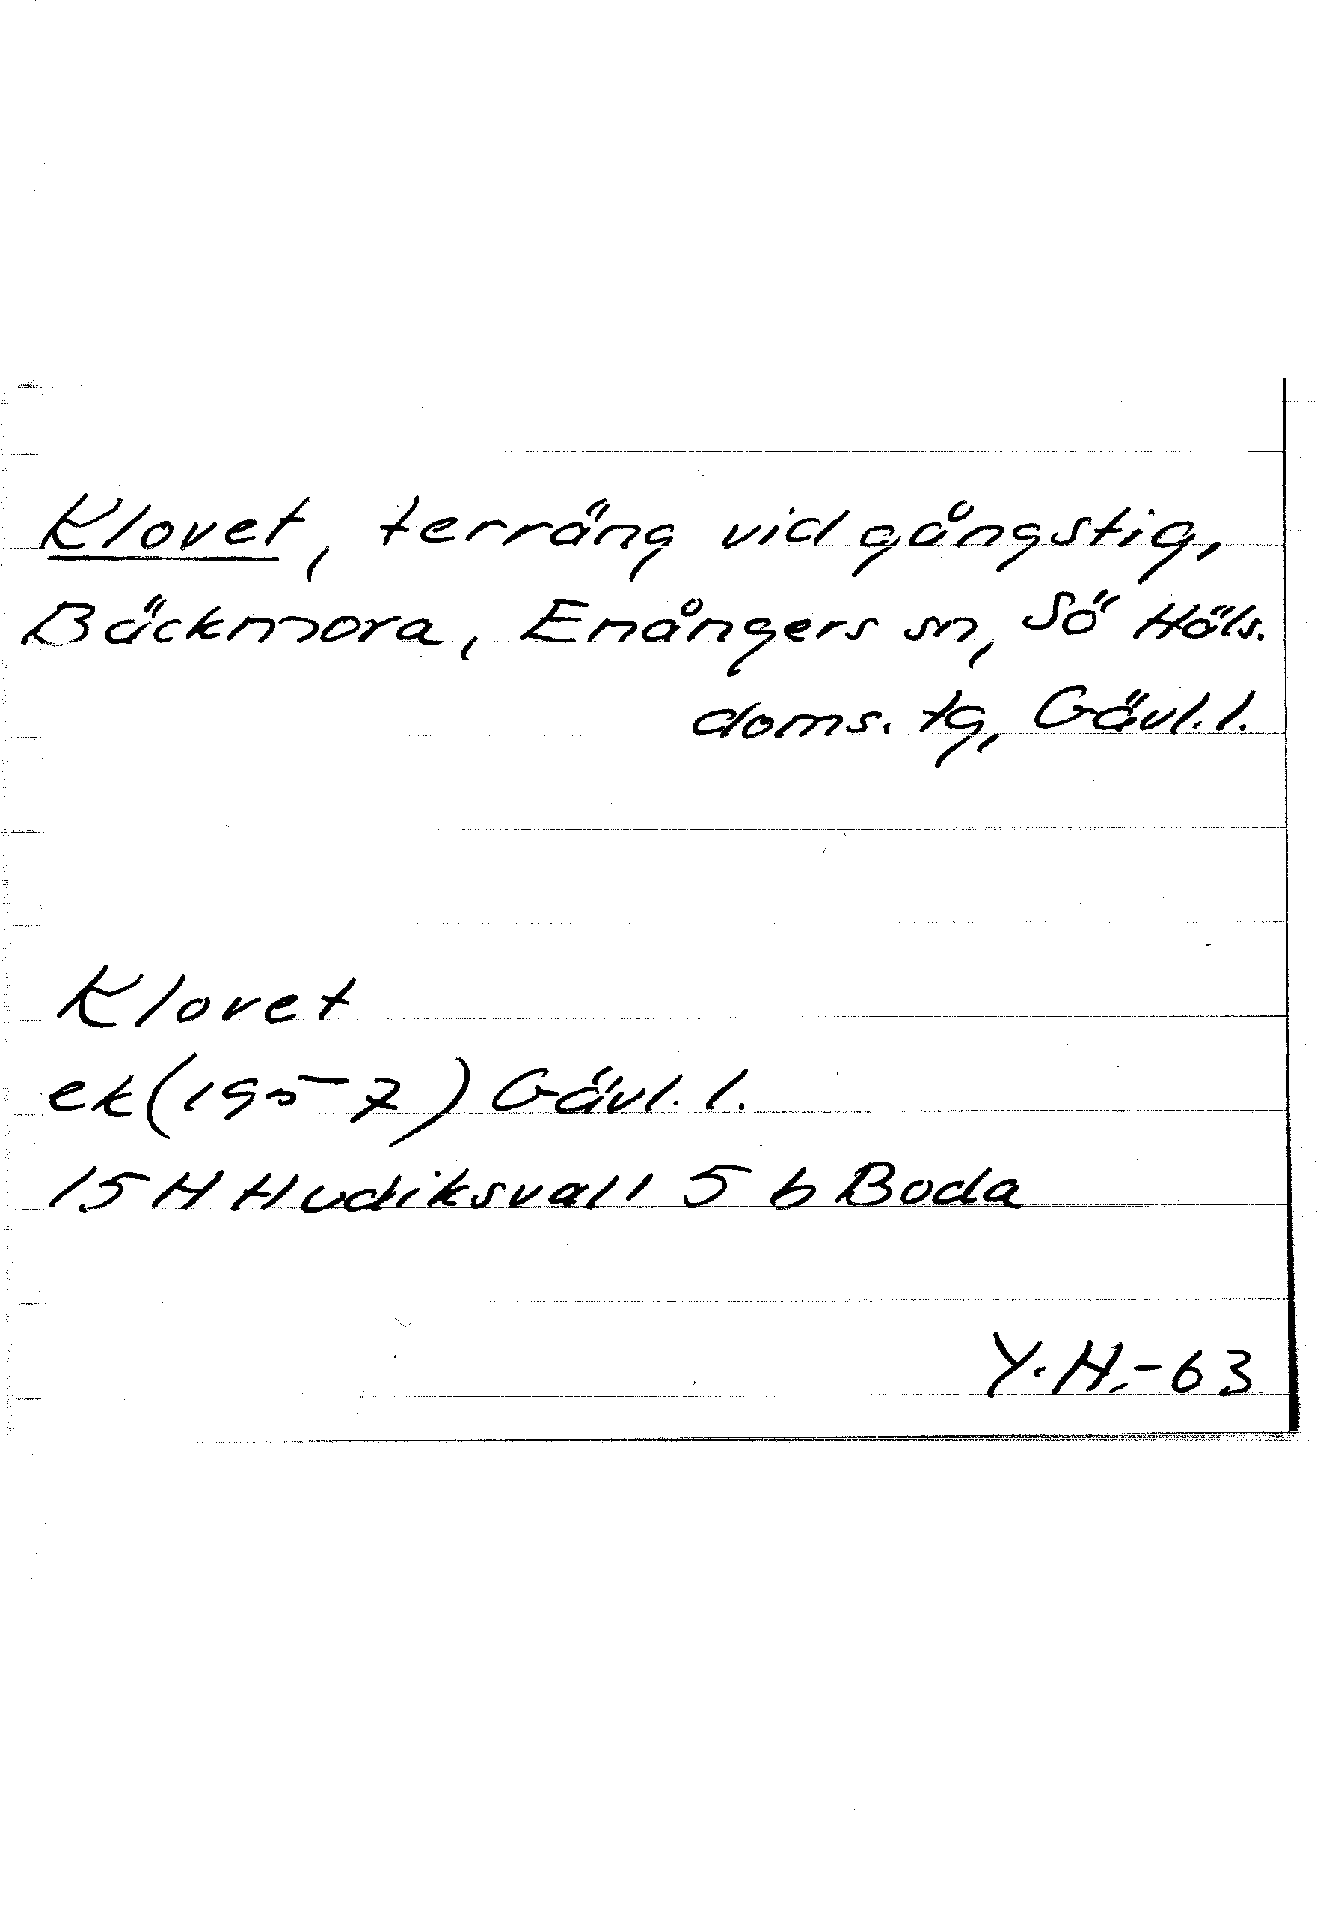 Klovet, terräng vid gångstig,
Bäckmora, Enångers sn, Sö Häls.
doms. tg, Gävl. l.
Klovet
ek (1957) Gävl. l.
15 H Hudiksvall 5 b Boda
Y. H. - 63